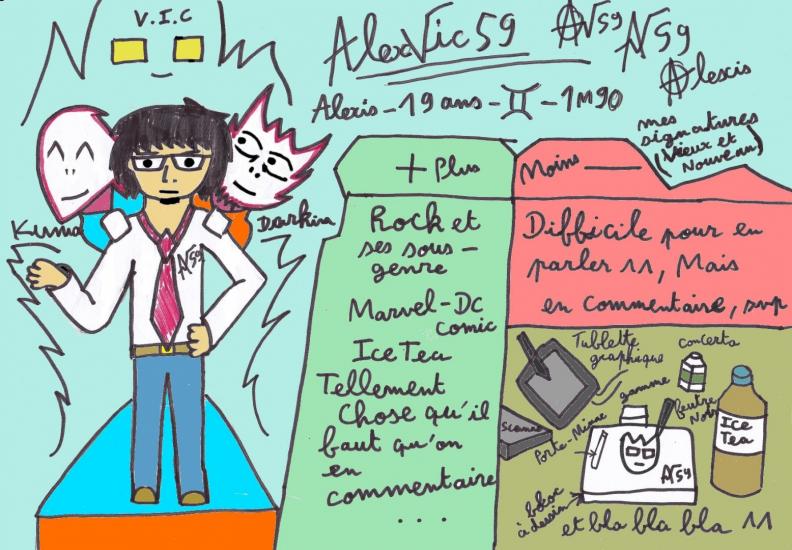 V.I.C
AlexVic59
AV59
AV59
Alexis
Alexis - 19 ans - ♊ - 1M90
mes
signatures
(Vieux et
Nouveau)
Kuma
Darkira
AV59
+ Plus
Rock et
ses sous-
genre
Marvel-Dc
comic
Ice Tea
Tellement
Chose qu'il
faut qu'on
en
commentaire
...
Moins -
Difficile pour en
parler ^^, Mais
en commentaire, svp
Tablette
graphique
concerta
gomme
feutre
Noir
Scanner
Porte-Mine
Ice
Tea
AV59
bloc
à dessin
et bla bla bla ^^